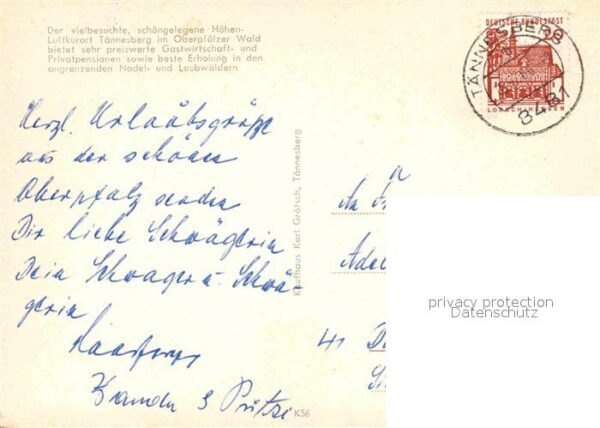 Der vielbesuchte, schöngelegene Höhen-
Luftkurort Tännesberg im Oberpfälzer Wald
bietet sehr preiswerte Gastwirtschaft- und
Privatpensionen sowie beste Erholung in den
angrenzenden Nadel- und Laubwäldern
DEUTSCHE BUNDESPOST
TÄNNESBERG
8481
LORSCH/HESSEN
Herzl. Urlaubsgrüße
aus der schönen
Oberpfalz senden
Dir liebe Schwägerin
Dein Schwager u. Schwä
gerin
Kaufhaus Karl Grötsch, Tännesberg
An
41
K56
privacy protection
Datenschutz